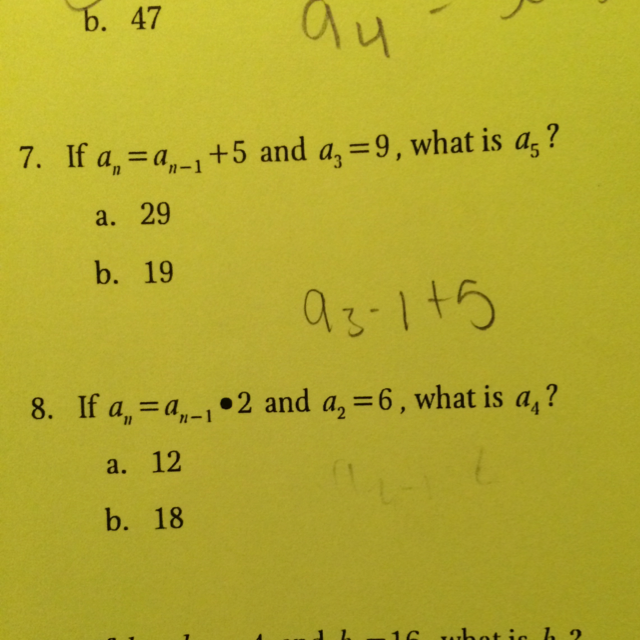 b. 47
a₄ -
7. If aₙ = aₙ₋₁ +5 and a₃ = 9, what is a₅?
a. 29
b. 19
a₃-1+5
8. If aₙ = aₙ₋₁ • 2 and a₂ = 6, what is a₄?
a. 12
b. 18
what is